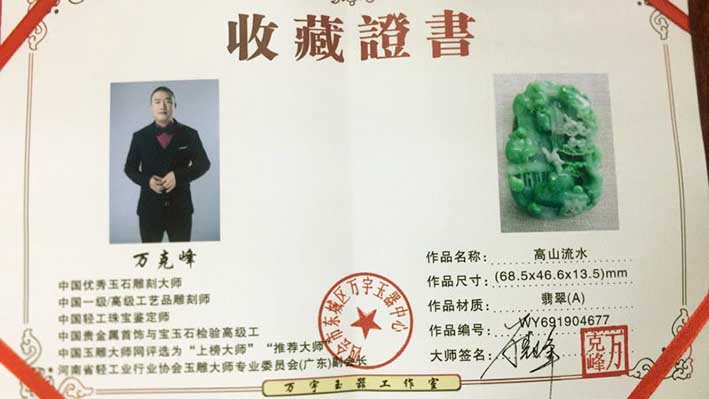 收藏證書
万克峰
中国优秀玉石雕刻大师
中国一级/高级工艺品雕刻师
中国轻工珠宝鉴定师
中国贵金属首饰与宝玉石检验高级工
中国玉雕大师网评选为“上榜大师”“推荐大师”
*河南省轻工业行业协会玉雕大师专业委员会(广东)副会长
作品名称: 高山流水
作品尺寸: (68.5x46.6x13.5)mm
作品材质: 翡翠(A)
作品编号: WY691904677
大师签名:
万克峰
四会市东城区万字玉器中心
万字玉器工作室